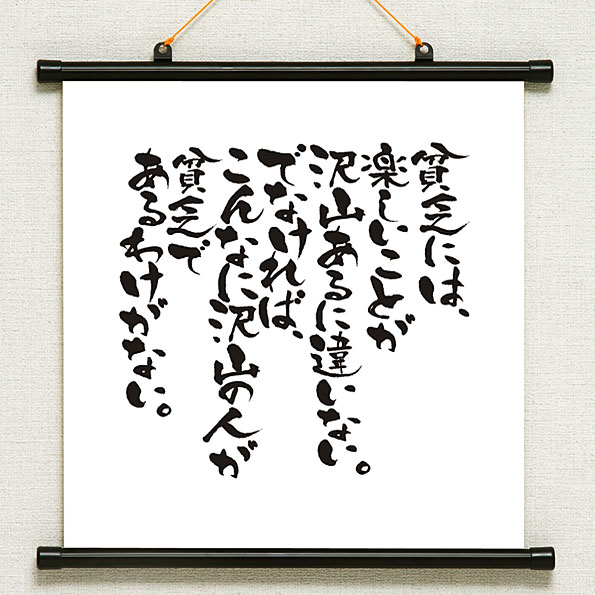 貧乏には、
楽しいことが
沢山あるに違いない。
でなければ、
こんなに沢山の人が
貧乏で
あるわけがない。